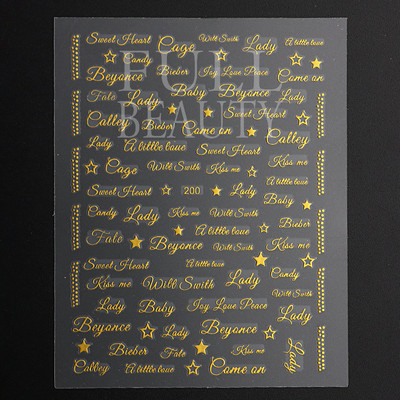 Sweet Heart Cage Will Swith Lady A little loue
FULL
Candy
Beyonce Bieber Ioy Loue Peace Come on
Fate Lady Baby Beyonce Lady
BEAUTY
Calley Bieber Come on Sweet Heart Calley
Lady A little loue Sweet Heart Kiss me
Cage Will Swith Lady A little loue
Sweet Heart 200 Lady Baby
Candy Lady Kiss me Will Swith Bieber
Fate Beyonce A little loue Will Swith Kiss me
Sweet Heart A little loue Candy
Kiss me Will Swith Lady Will Swith
Lady Baby Ioy Loue Peace Lady
Beyonce Lady Beyonce
Bieber Fate Kiss me Lady
Calley A little loue Come on